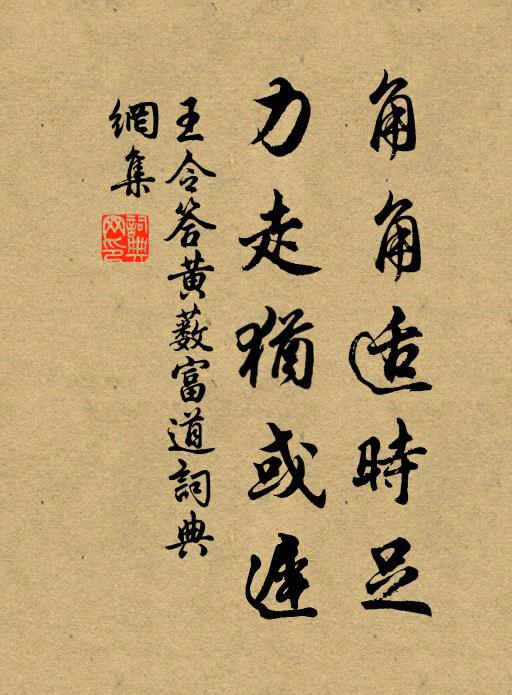 角角适時足
力走猶或遲
王令答黃藪富道詞典
網集
詞典網印